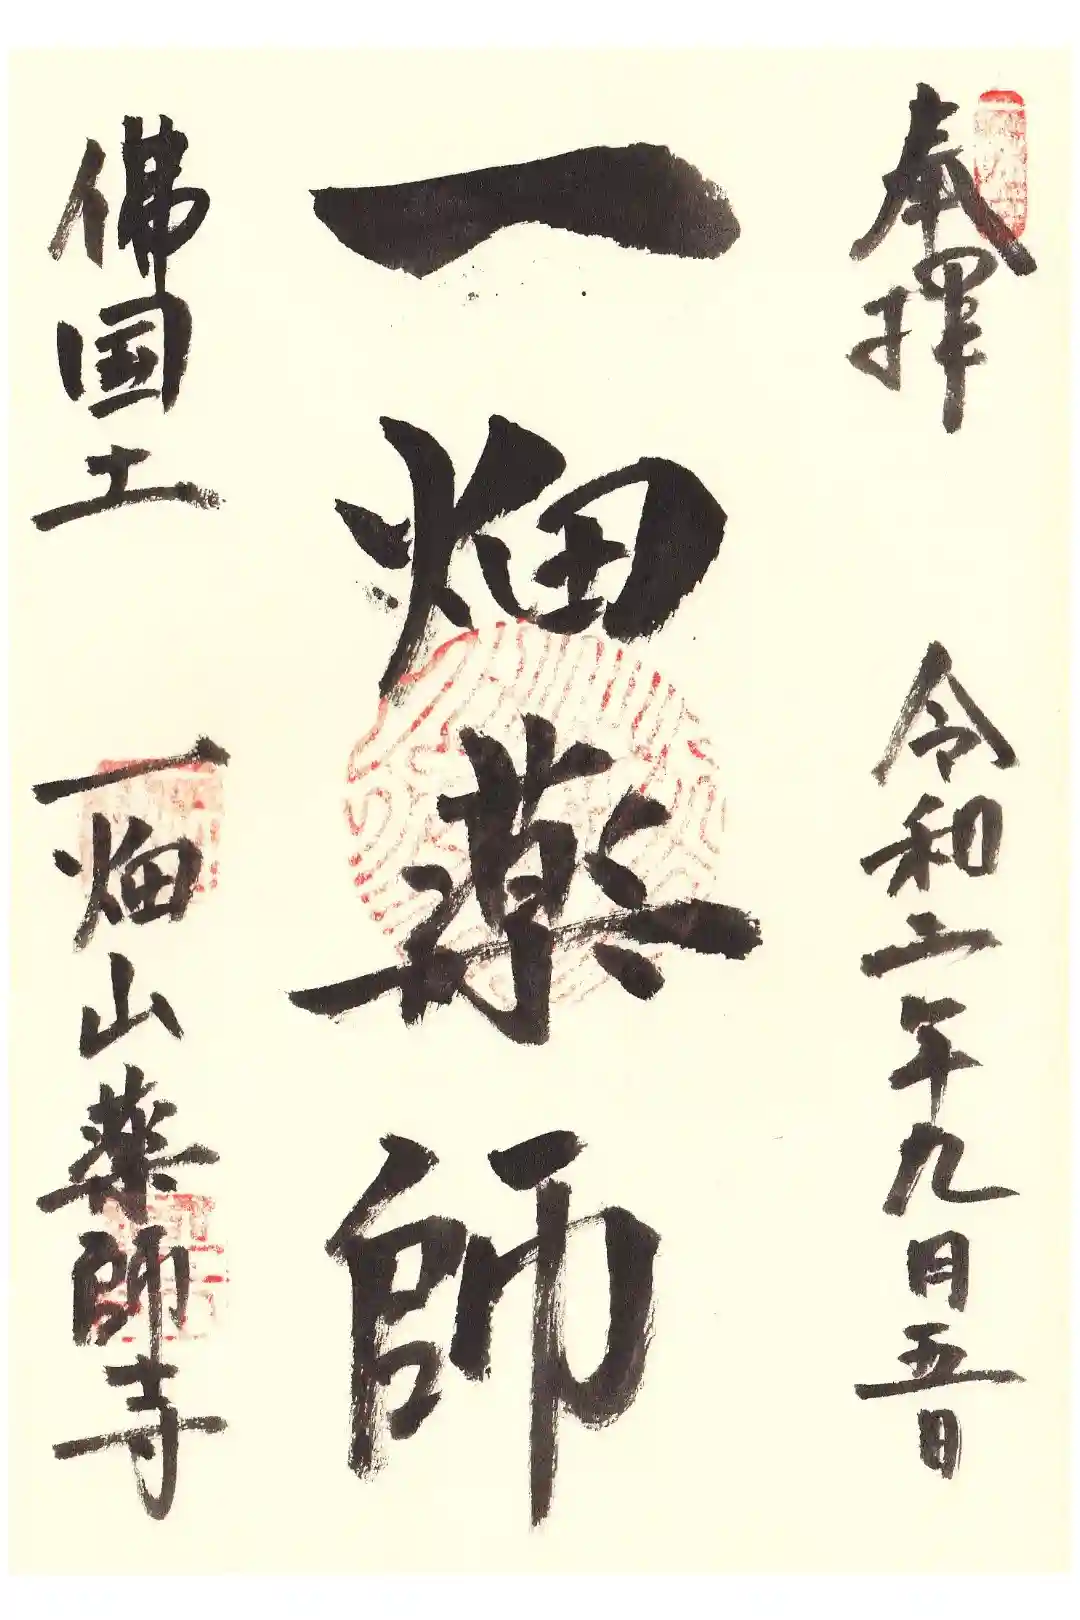 奉拝　令和二年九月五日
一畑薬師
佛国土　一畑山薬師寺